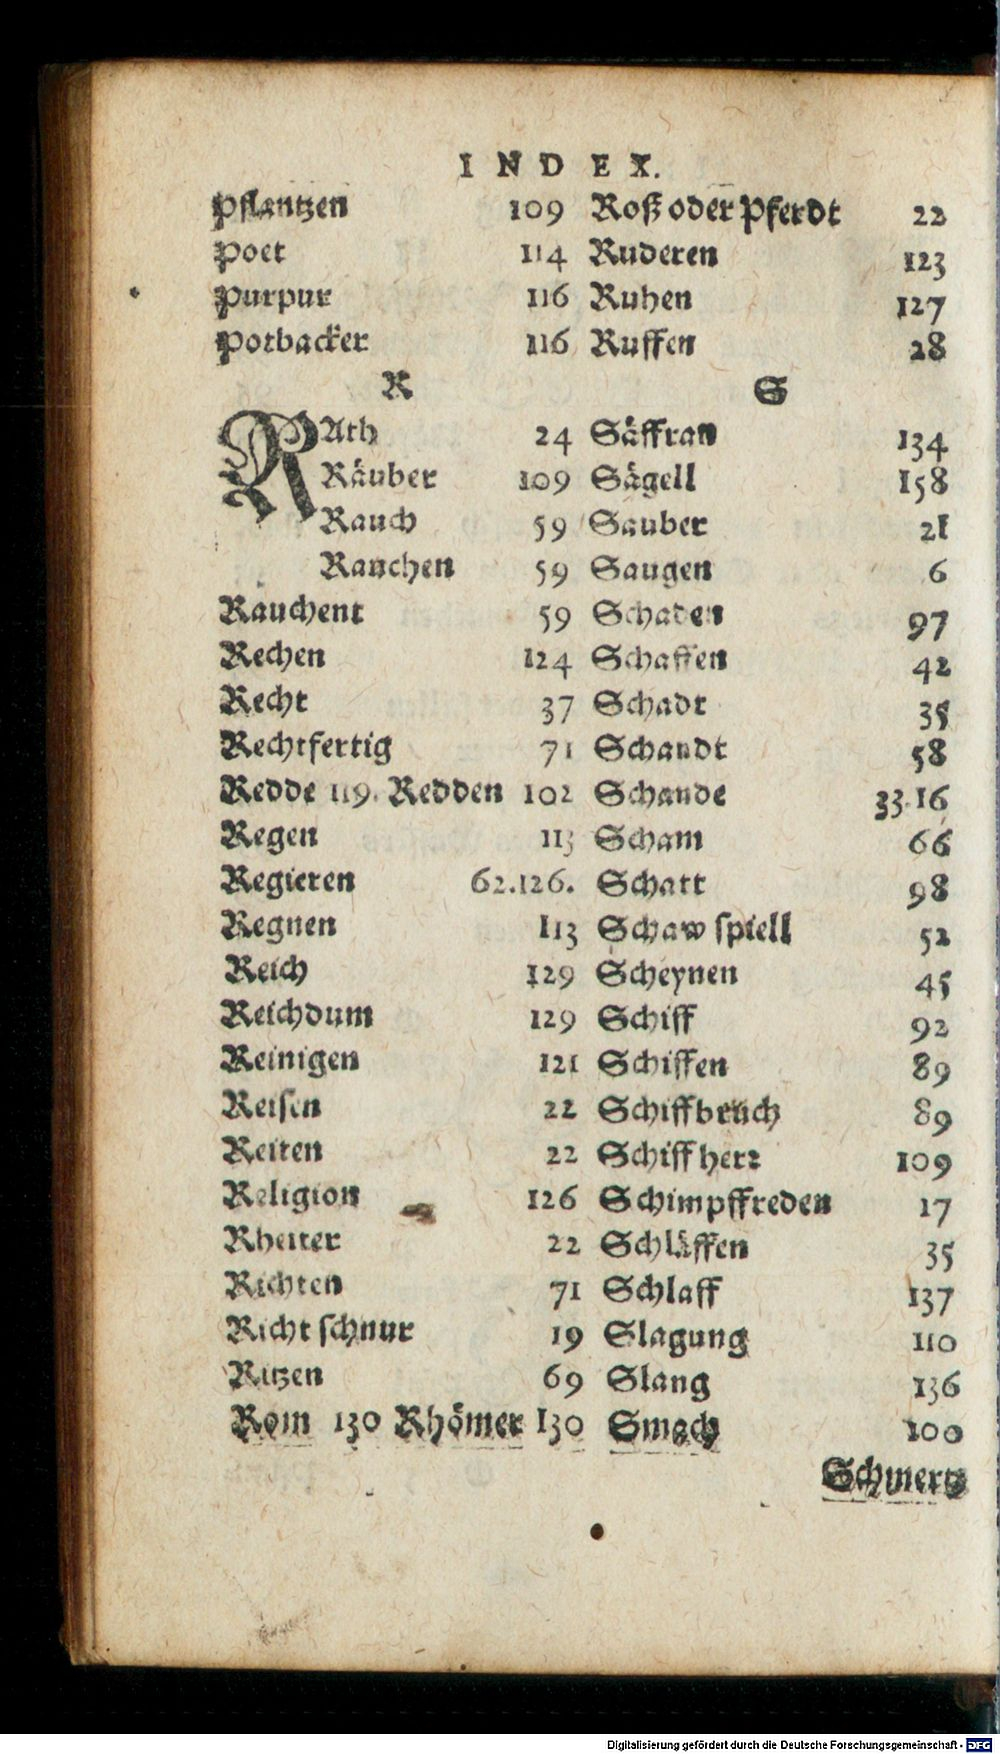 INDEX.
Pflantzen 109
Poet 114
Purpur 116
Potbacker 116
R
RAth 24
Räuber 109
Rauch 59
Rauchen 59
Rauchent 59
Rechen 124
Recht 37
Rechtfertig 71
Redde 119. Redden 102
Regen 113
Regieren 62.126.
Regnen 113
Reich 129
Reichdum 129
Reinigen 121
Reisen 22
Reiten 22
Religion 126
Rheiter 22
Richten 71
Richt schnur 19
Ritzen 69
Rom 130 Rhömer 130
Roß oder Pferdt 22
Ruderen 123
Ruhen 127
Ruffen 28
S
Säffran 134
Sägell 158
Sauber 21
Saugen 6
Schaden 97
Schaffen 42
Schadt 35
Schandt 58
Schande 33.16
Scham 66
Schatt 98
Schaw spiell 52
Scheynen 45
Schiff 92
Schiffen 89
Schiffbruch 89
Schiff herr 109
Schimpffreden 17
Schläffen 35
Schlaff 137
Slagung 110
Slang 136
Smach 100
Schmertz
Digitalisierung gefördert durch die Deutsche Forschungsgemeinschaft - DFG